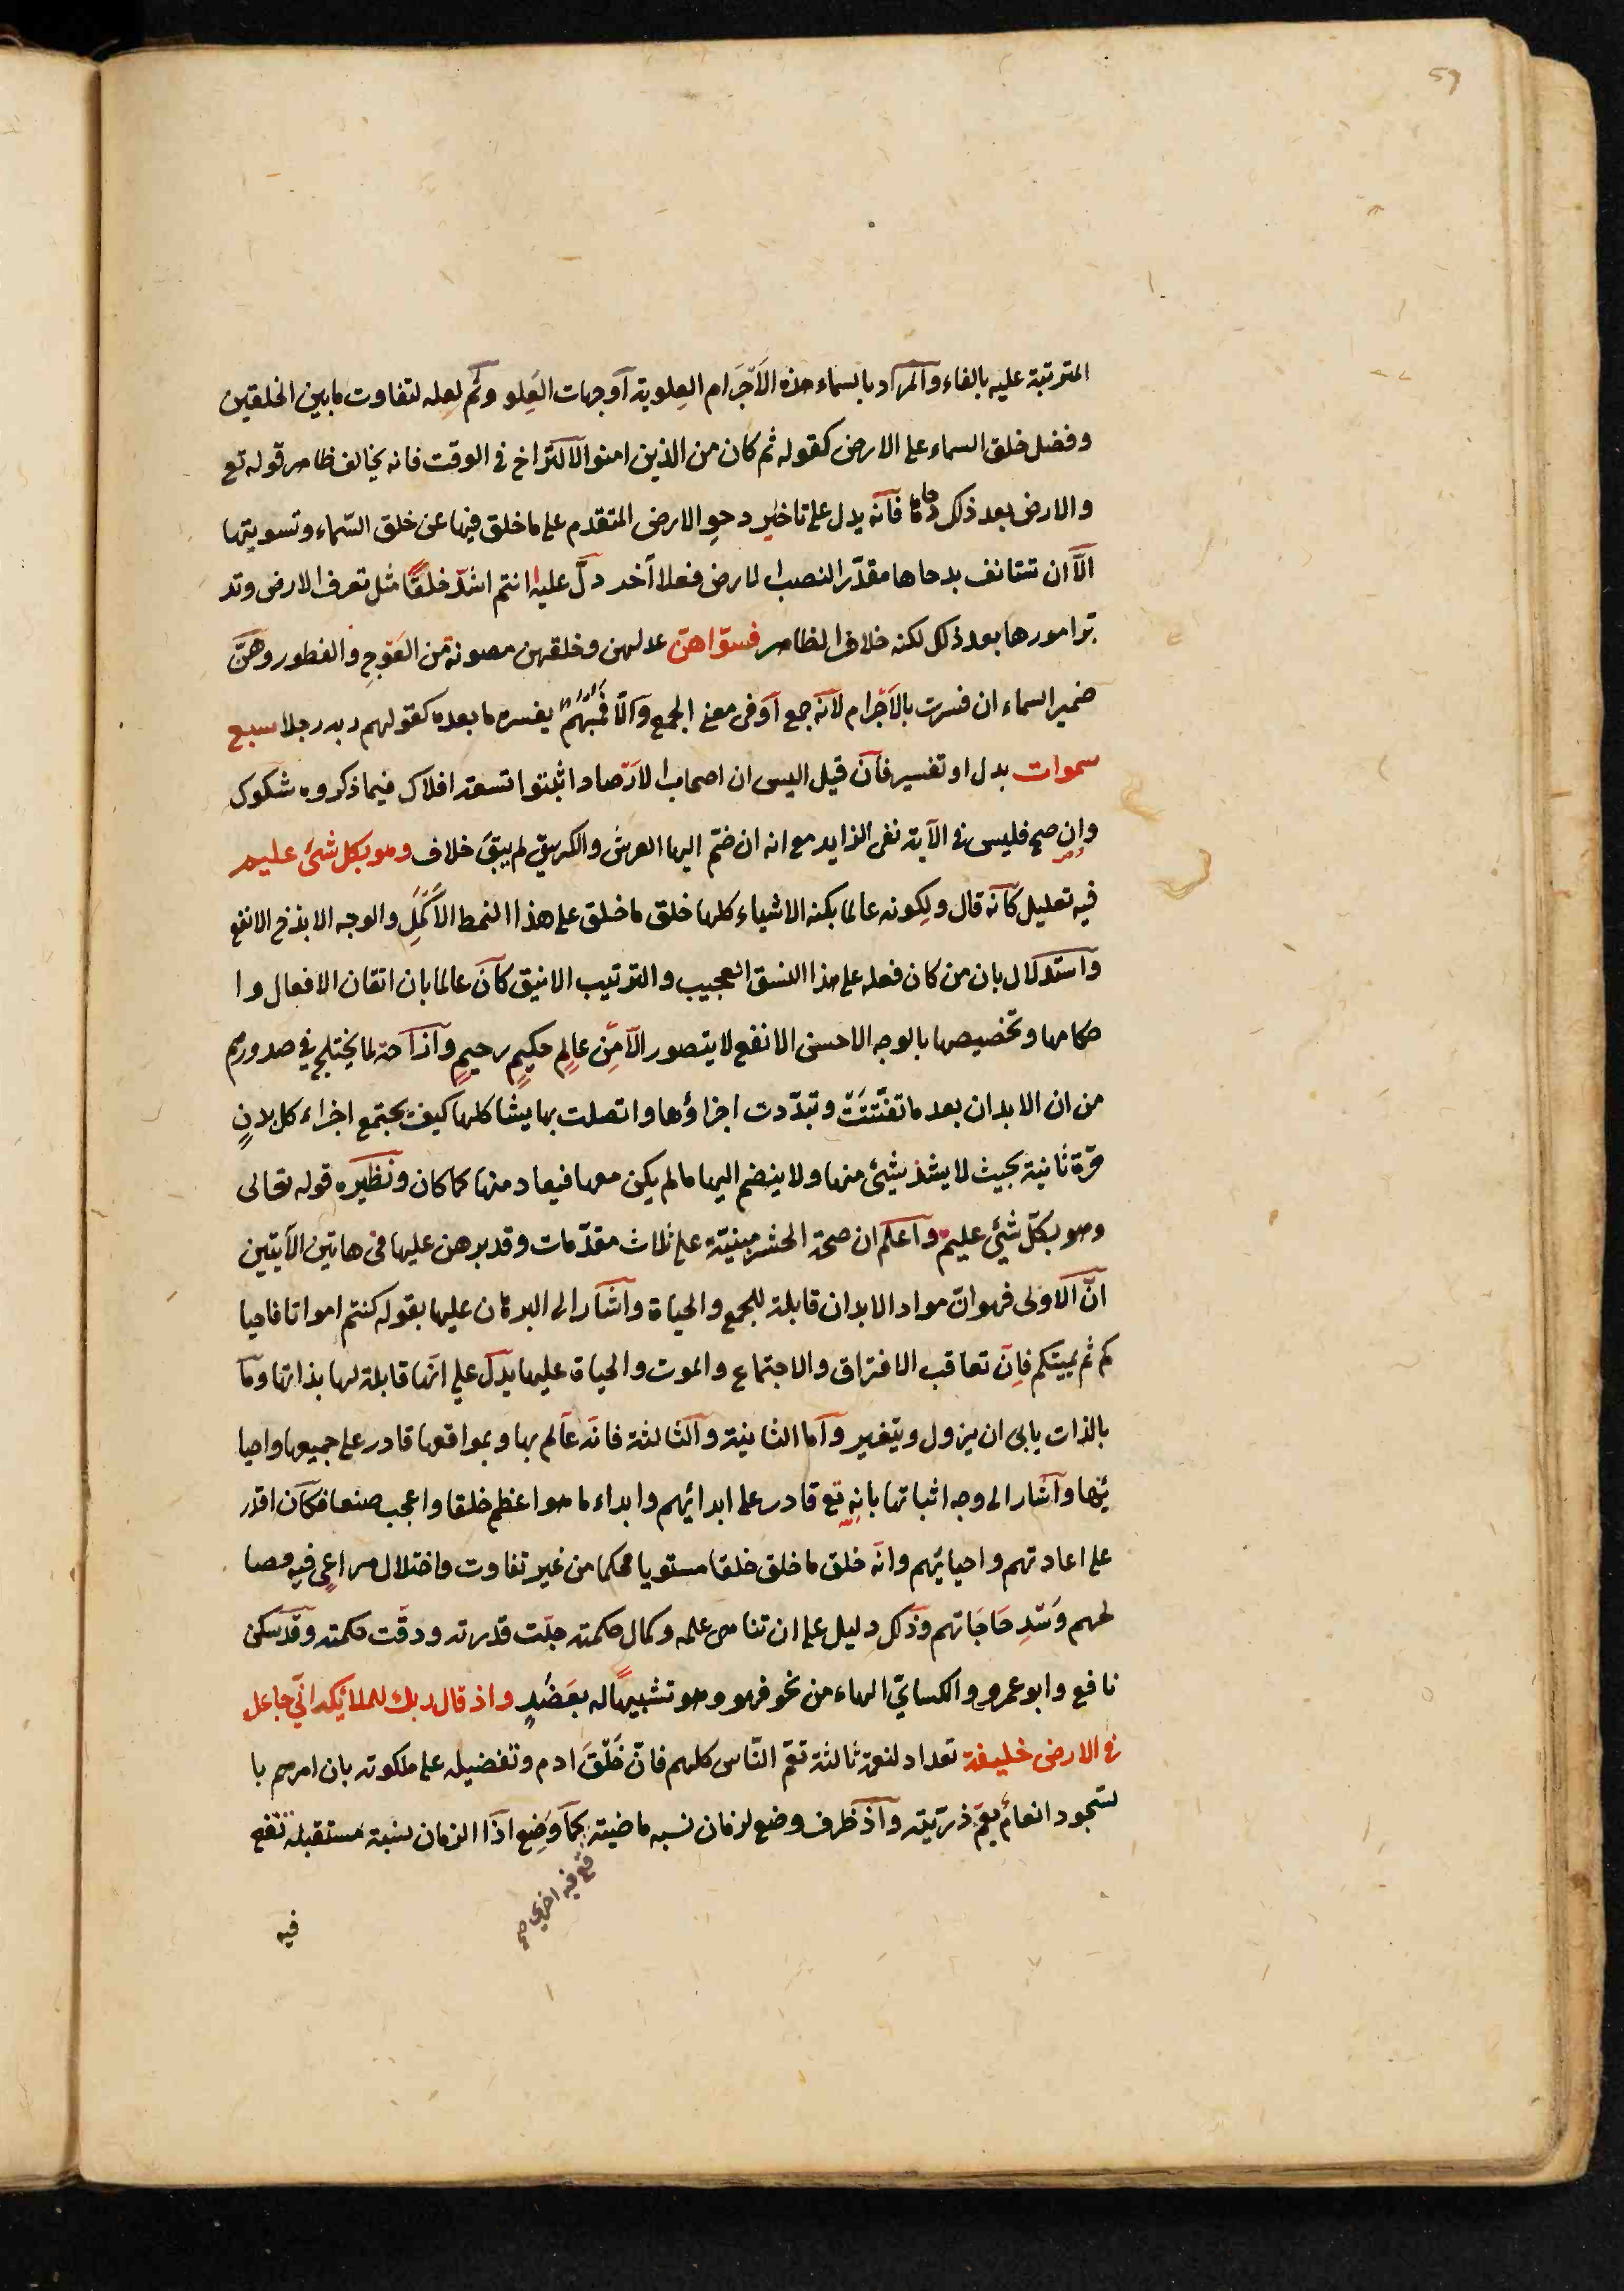 59
المترتبة عليه بالفاء والمراد بالسماء هذه الاَجرَام العِلوية اَوجهات العِلو وثم لعله لتفاوت مابين الخلقين
وفضل خلق السماء على الارض كقوله ثم كان من الذين امنوا لا لتراخ في الوقت فانه يخالف ظاهر قوله تع
والارض بعد ذلك دحاها فانه يدل على تاخير دحو الارض المتقدم على ما خلق فيها عن خلق السّماء وتسويتها
الّا ان تستانف بدحاها مقدّرا لنصب الارض فعلا آخر دلّ عليه ا انتم اشدّ خلقًا مثل تعرف الارض وتد
بّر امورها بعد ذلك لكنه خلاف الظاهر فسوّاهنّ عدلهن وخلقهن مصونة من العوَجِ والفطور وهنَّ
ضمير السماء ان فسرت بالاَجْرام لانّه جمع اَو فى معنى الجمع والّا فمُبْهَمٌ يفسره ما بعده كقولهم ربه رجلا سبع
سموات بدل او تفسير فان قيل اليس ان اصحاب الارَصاد اثبتوا تسعة افلاك فيما ذكروه شكوك
وان صح فليس في الآية نفى الزايد مع انه ان ضمّ اليها العرشُ والكرسيّ لم يبقَ خلاف وهو بكل شئ عليم
فيه تعليل كانّه قال ولِكونه عالما بكنه الاشياء كلها خلق ما خلق على هذا النمط الاَكمَلِ والوجه الا بذخ الانفع
واستدلال بان من كان فعله على هذا النسق العجيب والترتيب الانيق كان عالما بان اتقان الافعال وا
حكامها وتخصيصها بالوجه الاحسن الانفع لا يتصور الّا مِن عالِمٍ حكيمٍ رحيمٍ وازاحة لما يختلج في صدورهم
من ان الابدان بعد ما تفتّتَتْ وتبدّدت اجزاؤها واتصلت بما يشاكلها كيف يجتمع اجزاء كل بدنٍ
مّرة ثانية بحيث لا يشذ شيئ منها ولا ينضم اليها ما لم يكن معها فيعاد منها كما كان ونظيره قوله تعالى
وهو بكلّ شيئ عليم واعلم ان صحة الحشر مبنيّة على ثلاث مقدّمات وقد برهن عليها فى هاتين الآيتين
امّا الاولى فهوانّ مواد الابدان قابلة للجمع والحياة واشار الى البرهان عليها بقوله كنتم امواتا فاحيا
كم ثم يميتكم فاِنّ تعاقب الافتراق والاجتماع والموت والحياة عليها يدل على انها قابلة لها بذاتها وما
بالذات يابى ان يزول ويتغير وامّا الثانية والثالثة فانه عالم بها وبمواقعها قادر على جميعها واحيا
ئها واشار الى وجه اثباتها بانه تع قادر على ابدائهم وابداء ما هو اعظم خلقا واعجب صنعا فكان اقدر
على اعادتهم واحيائهم وانّه خلق ما خلق خلقا مستويا محكما من غير تفاوت واختلال مراعى فيه مصا
لحهم وَسّدِ حاجاتهم وذلك دليل على ان تناهى علمه وكمال حكمته جلّت قدرته ودقّت حكمته وقد سكن
نافع وابوعمرو والكسايّ الهاء من نحو فهو وهو تشبيهًا له بعَضُدٍ واذ قال ربك للملائكة انّي جاعل
في الارض خليفة تعداد لنعمة ثالثة تعمّ النّاس كلهم فانّ خَلْقَ ادم وتفضيله على ملكوته بان امرهم با
لسّجود انعامٌ يعُمّ ذريّته واذ ظرف وضع لزمان نسبه ماضية كما وُضِع اذَا الزمان نسبة مستقبلة تقع
تقع فيه اخرى صح
فيه